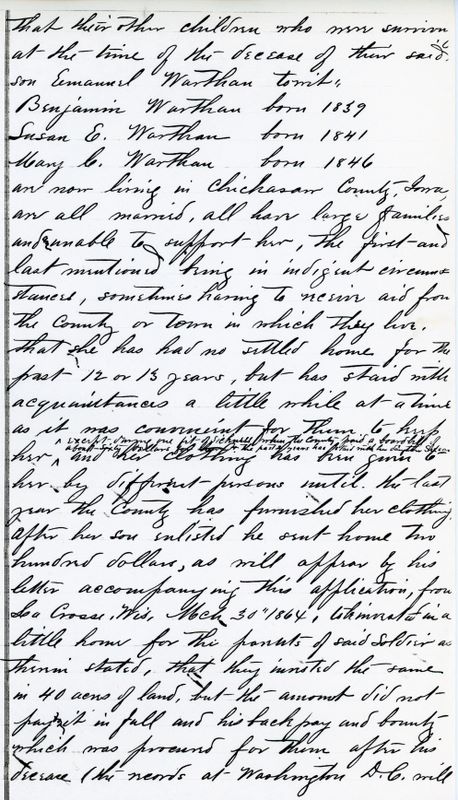 that their other children who were survivin
at the time of the decease of their said
son Emanuel Warthan towit,
Benjamin Warthan born 1839
Susan E. Warthan born 1841
Mary C. Warthan born 1846
are now living in Chickasaw County, Iowa
are all married, all have large families
and unable to support her, the first and
last mentioned being in indigent circum-
stances, sometimes having to receive aid from
the County or town in which they live.
that she has had no settled home for the
past 12 or 13 years, but has staid with
acquaintances a little while at a time
as it was convenient for them to keep
except during one fit of sickness when the County paid a board bill
about sixty dollars the past years has
her and her clothing has been given to
her by different persons until the last
year the County has furnished her clothing.
After her son enlisted he sent home two
hundred dollars, as will appear by his
letter accompanying this application, from
La Crosse, Wis, Mch 30" 1864, to invest in a
little home for the parents of said soldier as
therein stated, that they invested the same
in 40 acres of land, but the amount did not
pay it in full and his back pay and bounty
which was procured for them after his
decease (the records at Washington D.C. will